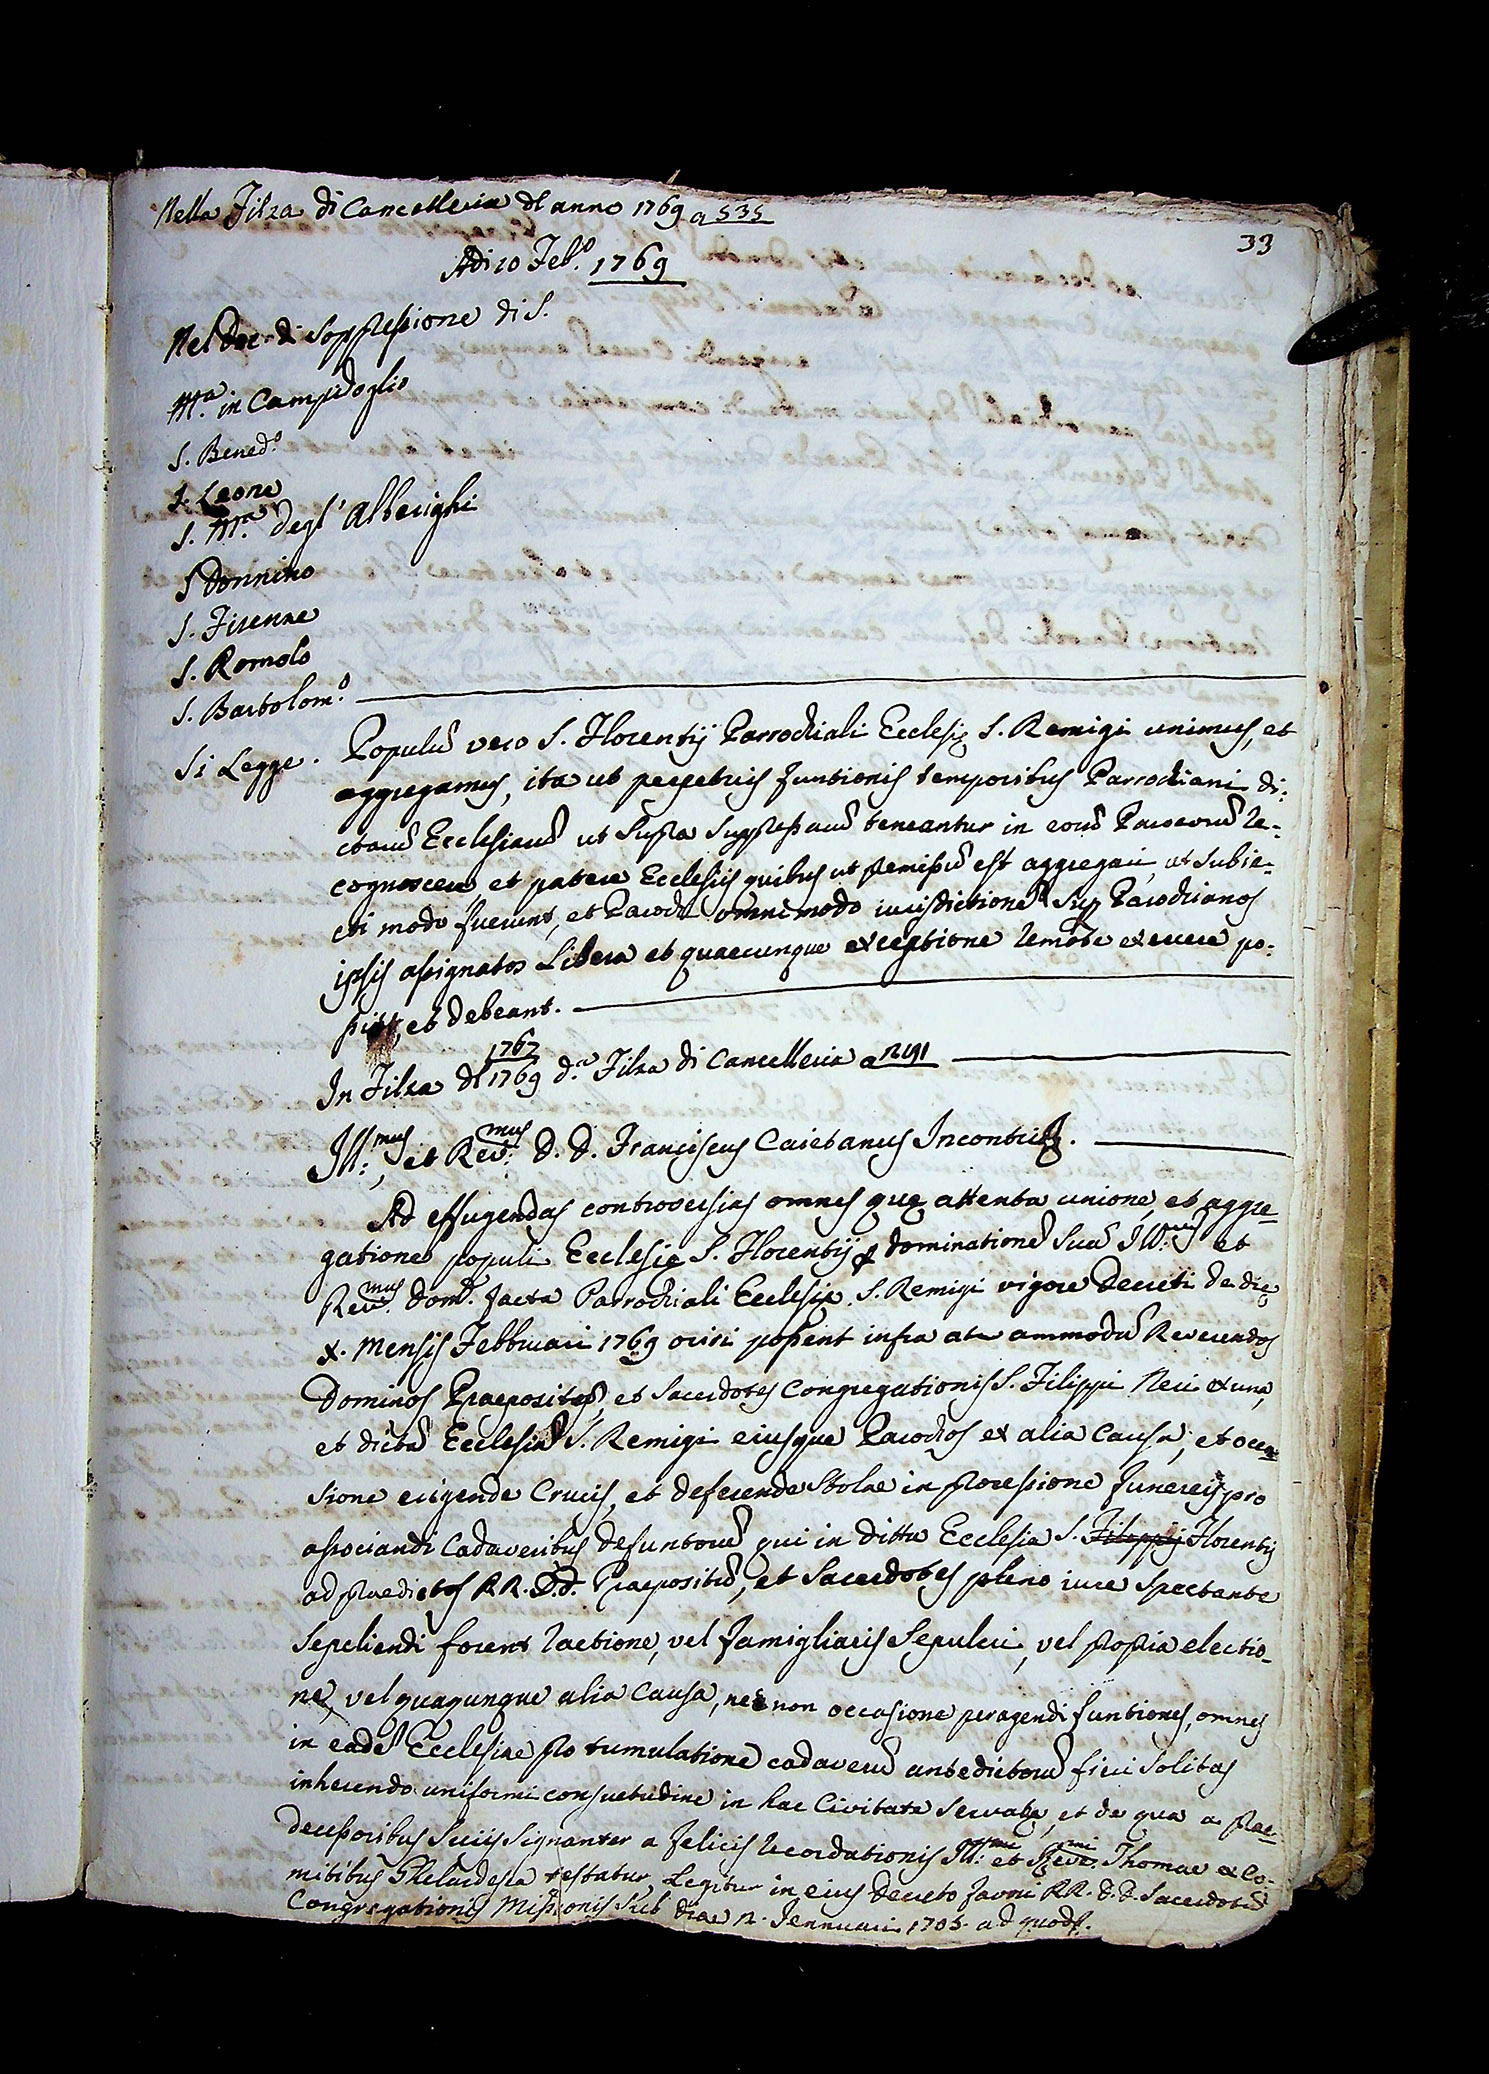 Nella Filza di Cancelleria dl anno 1769 a 535
33
Adi 10 Feb.o 1769
Nel Dec. di Soppressione di S.
M.a in Campidoglio
S. Bened.o
S. Leone
S. M.a degl' Alberighi
S Donnino
S. Firenze
S. Romolo
S. Bartolom.o
Si Legge. Populũ vero S. Florentij Parrochiali Ecclesię S. Remigi unimus, et
aggregamus, ita ut perpetriis funtionis temporibus Parrochiani di:
ctarũ Ecclesiarũ ut supra suppressarũ teneantur in eorũ Parocorũ re-
cognoscere et patere Ecclesiis quibus ut premissũ est aggregari, ut subie-
cti modo fuerunt, et Parochi omnimodo iurisdictionẽ sup Parochianos
ipsis assignatos Libera et quaecunque exceptione remota exercere po:
ssint, et debeant.
1767
In Filza dl 1769 d.a Filza di Cancelleria a n 191
Ill:mus, et Rev:mus D. D. Franciscus Caietanus Incontri
Ad effugendas controversias omnes quę attenta unione, et aggre-
gatione populi Ecclesię S. Florentij p dominationẽ Suã Ill:mus et
Rev.mus Domũ. facta Parrochiali Ecclesię S. Remigi vigore Decreti de die
X. Mensis Febbruari 1769 oriri possent infra at ammodũ Reverendos
Dominos Praepositos, et Sacerdotes Congregationis S. Filippi Neri ex una,
et dictã Ecclesiã S. Remigi eiusque Parochos ex alia Causa, et occa-
sione erigende Crucis, et deferende Stolae in processione funereis pro
associandi Cadaveribus defuntorũ qui in ditta Ecclesia S. Filippij Florentij
ad praedictos RR. D.D. Praepositũ, et Sacerdotes pleno iure spectante
Sepeliendi forent ractione, vel famigliaris Sepulcri, vel propria electio-
ne, vel quaqunque alia Causa, nec non occasione peragendi funtiones, omnes
in eadẽ Ecclesiae pro tumulatione cadaverũ antedictorũ fieri solitas
inherendo uniformi consuetudine in hac Civitate servata, et de qua a prae-
decessoribus Suiis Signanter a felicis recordationis Ill:mi et Rev.mi Thomae ex Co-
mitibus Gherardesca testatur, Legitur in eius Decreto favori RR. D.D. Sacerdotũ
Congregationis Missionis Sub die 12. Jennuari 1703. ad quods.